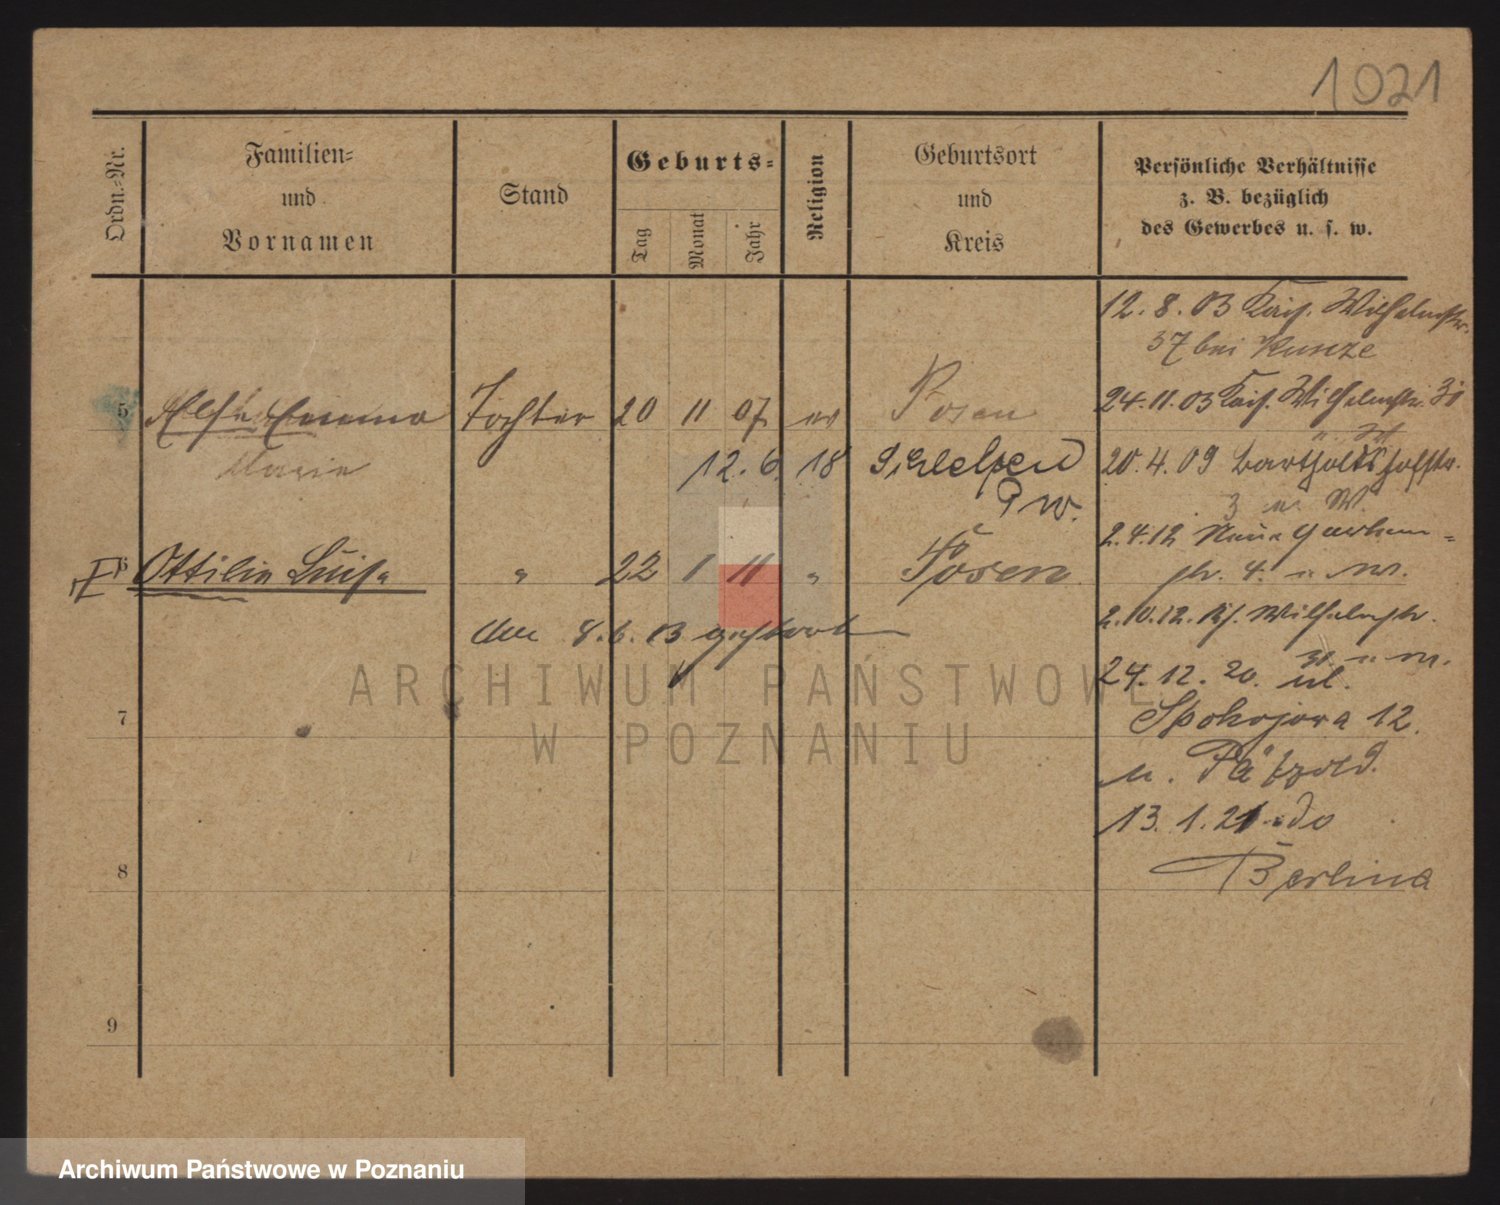 1021
Ordn.-Nr.
Familien-
und
Vornamen
Stand
Geburts-
Tag
Monat
Jahr
Religion
Geburtsort
und
Kreis
Persönliche Verhältnisse
z. B. bezüglich
des Gewerbes u. s. w.
12. 8. 03 Kais. Wilhelmstr.
37 bei Kunze
24. 11. 03 Kais. Wilhelmstr. 31
5 Else Emma Tochter 20 11 07 ev Posen
Marie
12. 6. 18
20. 4. 09 Bartholdshofstr.
3 W.
2. 4. 12 Neue Garten=
str. 4.
6 Ottilie Luise " 22 1 11 " Posen
am 8. 6. 13 gestorben
2. 10. 12. Ks. Wilhelmstr.
31
24. 12. 20. ul.
Spokojowa 12.
7
u. Pätzold.
13. 1. 21 do
Berlina
8
9
ARCHIWUM PAŃSTWOWE
W POZNANIU
Archiwum Państwowe w Poznaniu